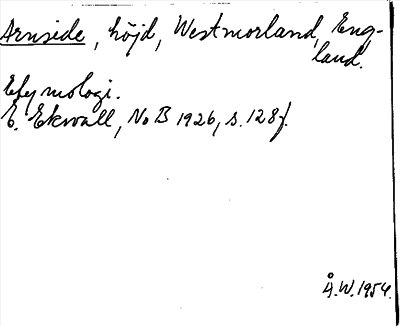 Arnside, höjd, Westmorland, Eng-
land.
Etymologi.
E. Ekwall, NoB 1926, s. 128f.
Å.W. 1954.